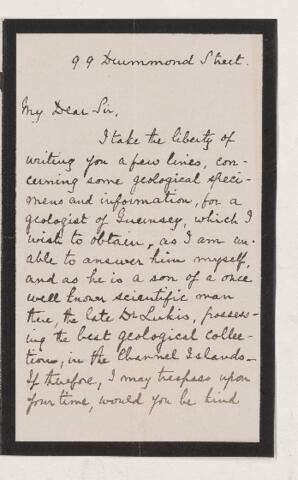 99 Drummond Street.
My Dear Sir,
I take the liberty of
writing you a few lines, con-
cerning some geological speci-
mens and information, for a
geologist of Guernsey, which I
wish to obtain, as I am un-
able to answer him myself,
and as he is a son of a once
well known scientific man
there, the late Dr Lukis, possess-
ing the best geological collec-
tions, in the Channel Islands—
If therefore, I may trespass upon
your time, would you be kind